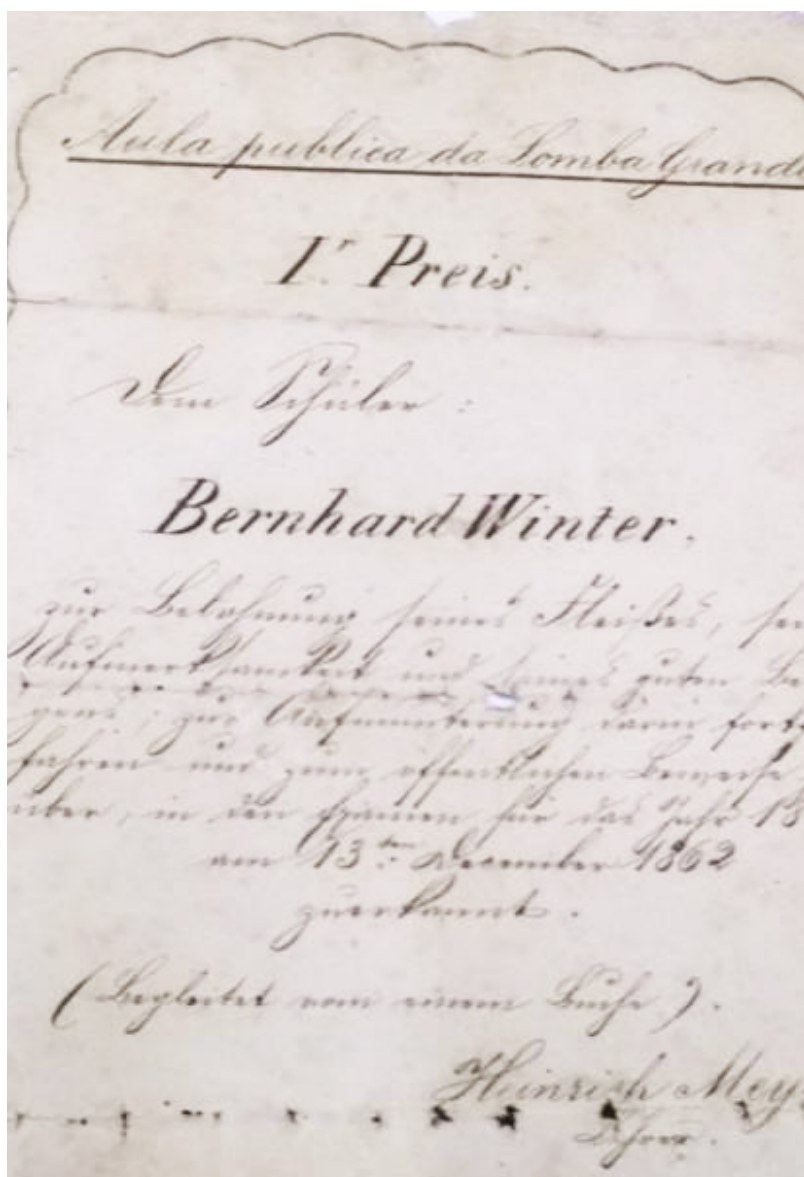 Aula publica da Lomba Grande
Ir. Preis.
Dem Schüler :
Bernhard Winter.
zur Belohnung seines Fleißes, sei
Aufmerksamkeit und seines guten Be
gens, zur Aufmunterung darin fortz
fahren und zum öffentlichen Beweise
über, in den Examen für das Jahr 18
am 13ten December 1862
zuerkannt.
(Begleitet vom einem Buche).
Heinrich Mey
Lehrer.